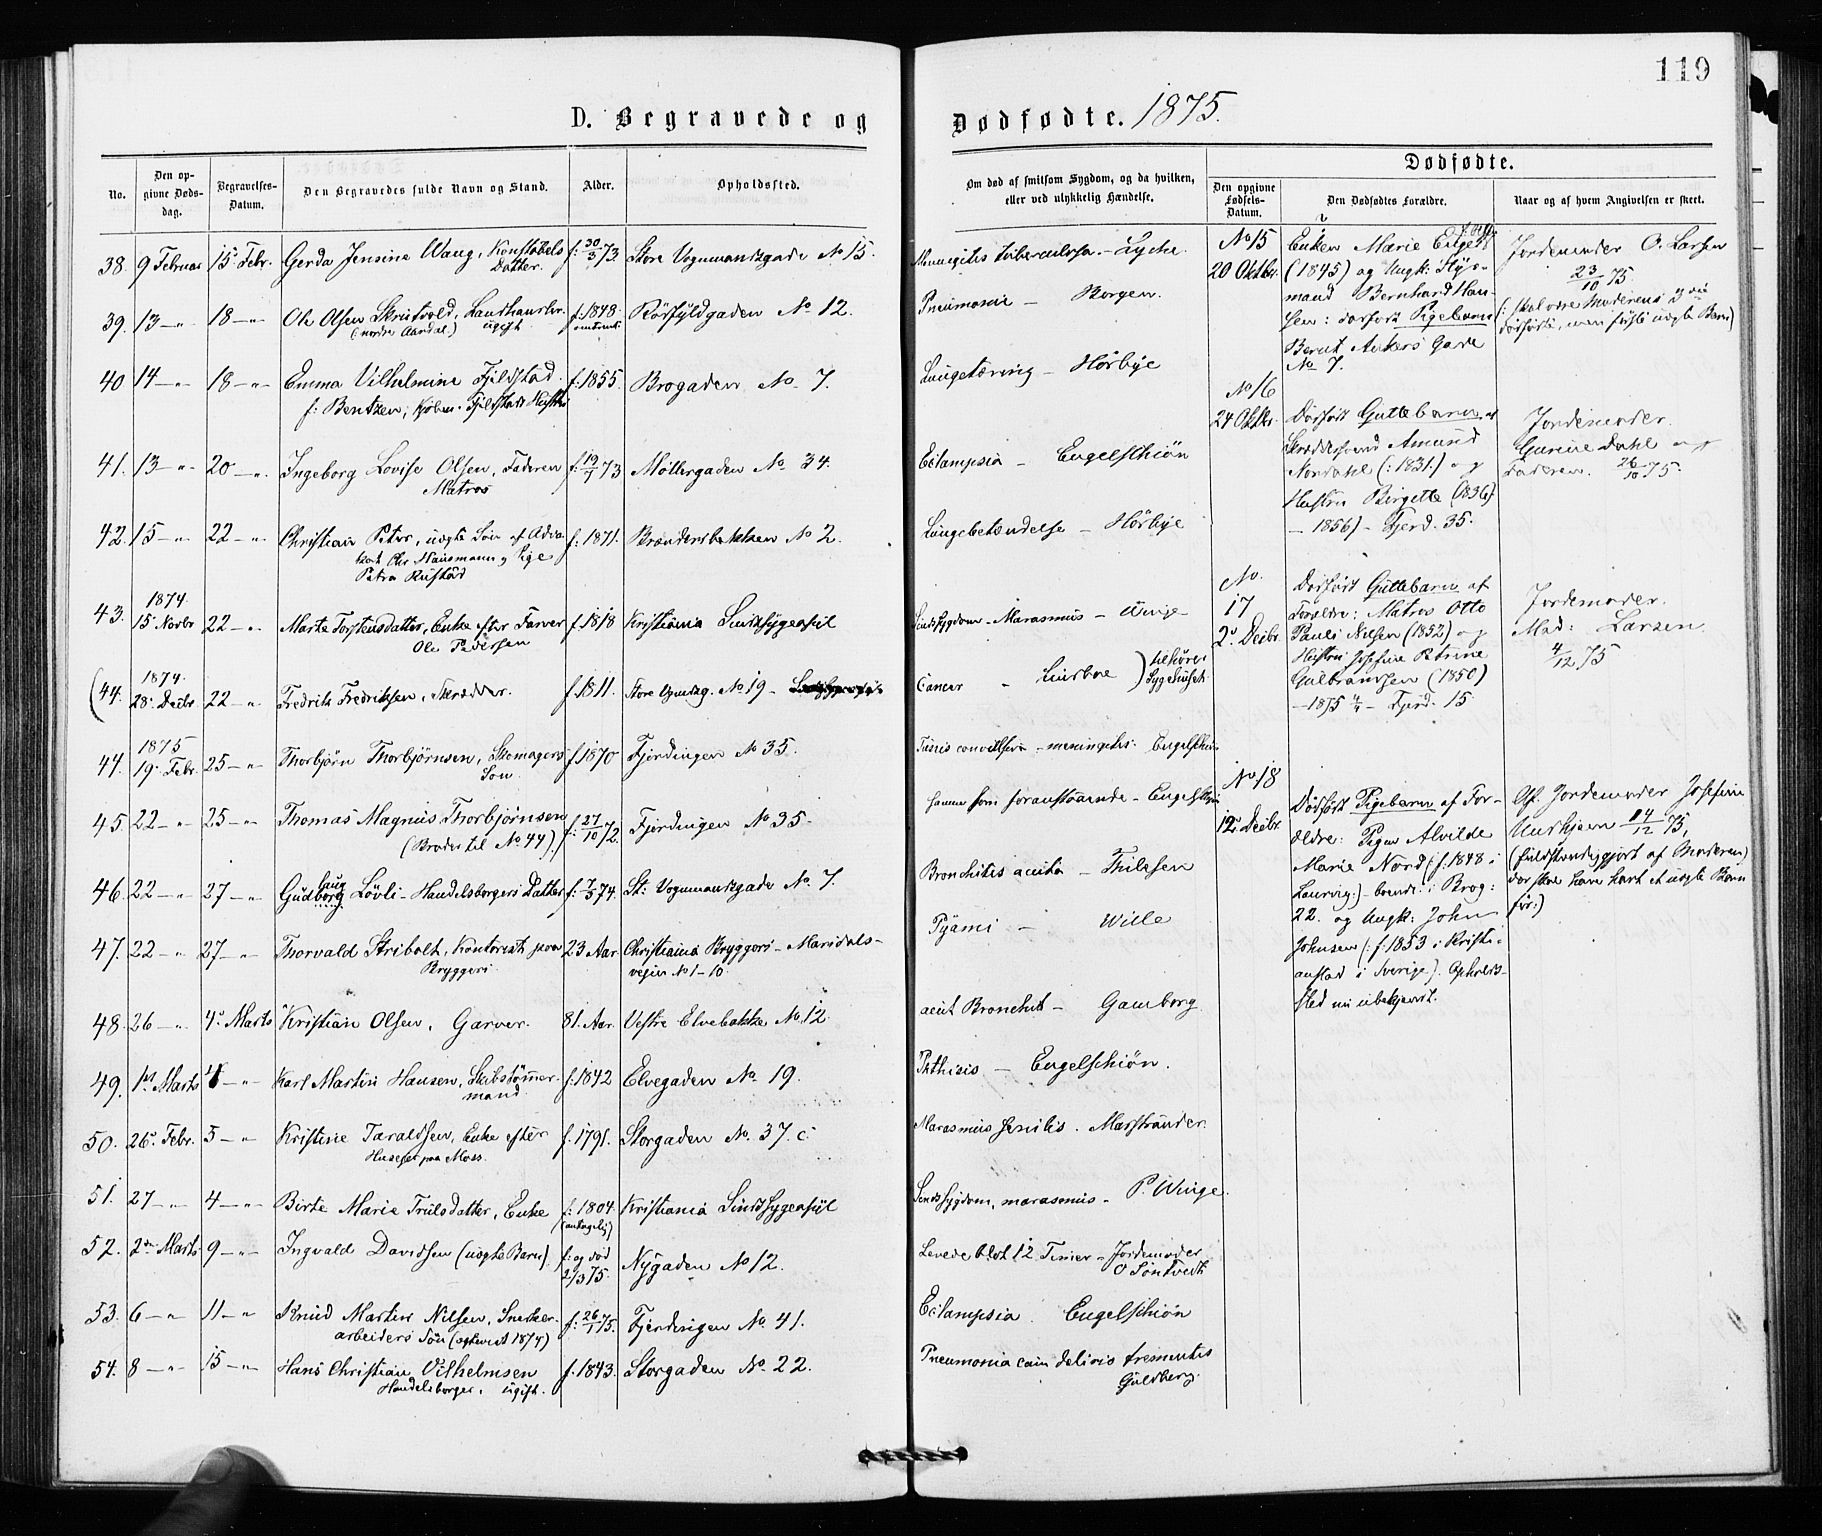 119
D. Begravede og Dødfødte. 1875.
No.
Den op-
givne Døds-
dag.
Begravelses-
Datum.
Den Begravedes fulde Navn og Stand.
Alder.
Opholdssted.
Om død af smitsom Sygdom, og da hvilken,
eller ved ulykkelig Hændelse.
Dødfødte.
Den opgivne
Fødsels-
Datum.
Den Dødfødtes Forældre.
Naar og af hvem Angivelsen er skeet.
38. 9 Februar 15 Febr. Gerda Jensine Waug, Konstabels f: 30/3 73 Store Vognmandsgade No 15. Meningitis tuberculosa - Lyche.
Datter.
39. 13 - " 18 - " Ole Olsen Skrutvold, f. 1848 Rörfyldgaden No 12. Pneumonie - Borgen.
(nordre Aurdal.) ugift. omtrent
40 14 - " 18 - " Emma Vilhelmine Fjeldstad f. 1855. Brogaden No 7. Lungetæring - Hørbye
f: Bentzen, Kjøbm. Fjeldstads Hustru
41. 13 - " 20 - " Ingeborg Lovise Olsen, Faderen f. 19/1 73 Møllergaden No 34. Eclampsia - Engelschiøn
Matros
42. 15 - " 22 - " Christian Peter, uægte Søn af Advo- f. 1871. Brændersbakken No 2. Lungebetændelse - Hørbye
kat Chr Hausmann og Pige
Petra Rustad
43. 1874
15 Novbr 22 - " Marte Torstensdatter, Enke efter Farver f. 1818 Kristiania Sindssygeasyl Sindssygdom - Marasmus - Winge
Ole Pedersen
(44. 1874.
28 Decbr. 22 - " Fredrik Fredriksen, Skrædder. f 1811. Store Vgmdsg. No 19 - Cancer - ) tilhører
Sygehuset.
44. 1875
19 Febr. 25 - " Thorbjørn Thorbjørnsen, Skomagers f 1870 Fjerdingen No 35. Tussis convulsiva - meningitis. Engelschiøn
Søn.
45. 22 - " 25 - " Thomas Magnus Thorbjørnsen f. 27/10 72. Fjerdingen No 35. samme som foranstaaende - Engelschiøn
(Broder til No 44)
46. 22 - " 27 - " Gudborg Løvli - Handelsborgers Datter f. 7/3 74. St: Vognmandsgade No 7. Bronchitis acuta - Thilesen
47. 22 - " 27 - " Thorvald Skribolt, Kontorist paa 23 Aar. Christiania Bryggeri - Maridals- Pyämi - Wille
Bryggeri. veien No 1-10.
48. 26 - " 4 Marts Kristian Olsen, Garver. 81. Aar. Vestre Elvebakke No 12 acut Bronchit - Gamborg
49. 1st Marts 4 - " Karl Martin Hansen, Skibstømmer- f. 1842 Elvegaden No 19. Phthisis - Engelschiøn.
mand.
50. 26 Febr. 5 - " Kristine Taraldsen, Enke efter f. 1791. Storgaden No 37. c. Marasmus senilis. Marstrander.
paa Moss.
51. 27 - " 4 - " Birte Marie Trulsdatter, Enke f: 1804. Kristiania Sindssygeasyl Sindssygdom, marasmus - P. Winge.
(antagelig)
52. 2den Marts 9 - " Ingvald Davidsen (uægte Barn). f. og død Nygaden No 12. Levede blot 12 Timer - Jordemoder
2/3 75. O Söntvedt
53. 6 - " 11 - " Knud Martin Nilsen, Snekker- f: 26/1 75. Fjerdingen No 41. Eclampsia. Engelschiøn
arbeiders Søn (ægteviet 1874)
54. 8 - " 15 - " Hans Christian Vilhelmsen f. 1843. Storgaden No 22. Pneumonia cum delirio trementis
Handelsborger. ugift. Guldberg.
No 15
20 Oktbr.
Enken Marie
(1845) og Ungk: Styr-
mand Bernhard Han-
sen: dødfødt Pigebarn
Bernt Ankers Gade
No 7.
Jordemoder O. Larsen
23/10 75.
(: skal være Moderens
dødfødte, men første uægte Barn)
No 16
24 Oktbr.
Dødfødt Guttebarn af
Skræddersvend Amund
Nordahl (: 1831.) og
Hustru Birgette (1836)
- 1856) - Fjerd. 35.
Jordemoder
Gurine Dahl og
Faderen. 26/10 75.
No.
17
2 Decbr.
Dødfødt Guttebarn af
Forældre: Matros Otto
Pauli Nilsen (1852) og
Hustru Josefine Petrine
Gulbrandsen (1850)
- 1875 - Fjerd. 15.
Jordemoder.
Mad: Larsen.
4/12 75
No 18
12 Decbr.
Dødfødt Pigebarn af For-
ældre: Pigen Alvilde
Marie Nord (f. 1848 i
Laurvig) - boende i Brog:
22. og Ungk: John
Johnsen (: f. 1853 i Kristi-
anstad i Sverige). Opholds-
sted nu ubekjendt.
Af Jordemoder Josefine
14/12 75,
(fuldstændiggjort af Moderen,
der skal have havt et uægte Barn
før:)